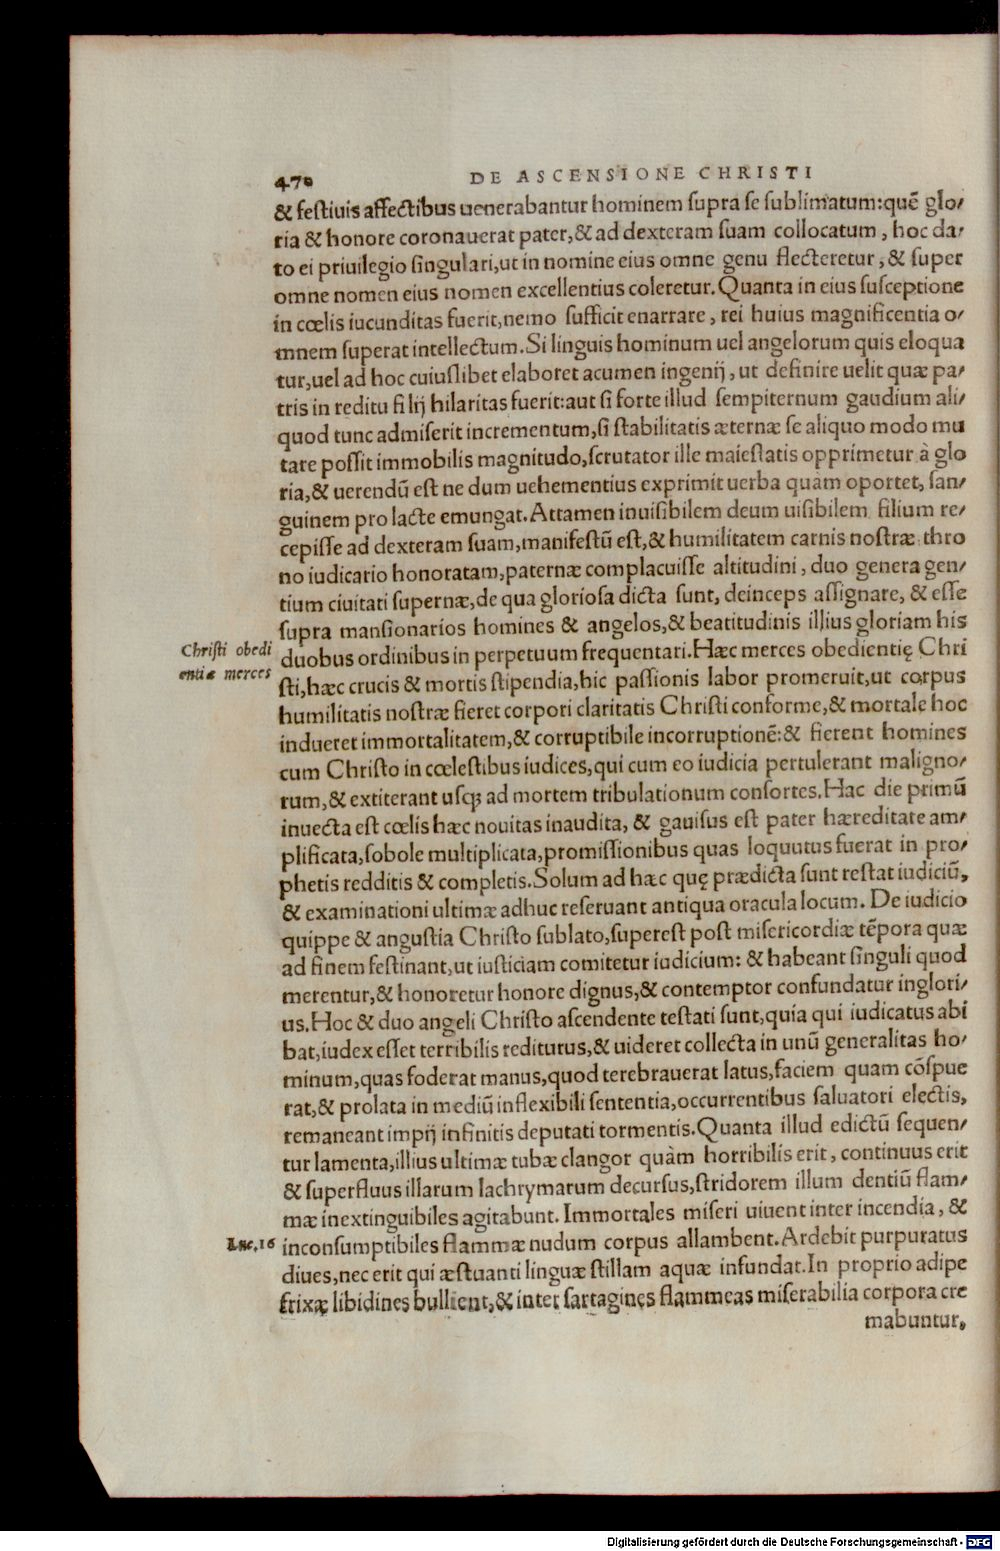 470 DE ASCENSIONE CHRISTI
& festiuis affectibus uenerabantur hominem supra se sublimatum:quẽ glo/
ria & honore coronauerat pater,& ad dexteram suam collocatum, hoc da/
to ei priuilegio singulari,ut in nomine eius omne genu flecteretur, & super
omne nomen eius nomen excellentius coleretur. Quanta in eius susceptione
in cœlis iucunditas fuerit,nemo sufficit enarrare, rei huius magnificentia o/
mnem superat intellectum. Si linguis hominum uel angelorum quis eloqua
tur,uel ad hoc cuiuslibet elaboret acumen ingenij, ut definire uelit quæ pa/
tris in reditu filij hilaritas fuerit:aut si forte illud sempiternum gaudium ali/
quod tunc admiserit incrementum,si stabilitatis æternæ se aliquo modo mu
tare possit immobilis magnitudo,scrutator ille maiestatis opprimetur à glo
ria,& uerendũ est ne dum uehementius exprimit uerba quàm oportet, san/
guinem pro lacte emungat. Attamen inuisibilem deum uisibilem filium re/
cepisse ad dexteram suam,manifestũ est,& humilitatem carnis nostræ thro
no iudicario honoratam,paternæ complacuisse altitudini, duo genera gen/
tium ciuitati supernæ,de qua gloriosa dicta sunt, deinceps assignare, & esse
supra mansionarios homines & angelos,& beatitudinis illius gloriam his
Christi obedi
entiæ merces
duobus ordinibus in perpetuum frequentari. Hæc merces obedientię Chri
sti,hæc crucis & mortis stipendia,hic passionis labor promeruit,ut corpus
humilitatis nostræ fieret corpori claritatis Christi conforme,& mortale hoc
indueret immortalitatem,& corruptibile incorruptionẽ:& fierent homines
cum Christo in cœlestibus iudices,qui cum eo iudicia pertulerant maligno/
rum,& extiterant usq; ad mortem tribulationum consortes. Hac die primũ
inuecta est cœlis hæc nouitas inaudita, & gauisus est pater hæreditate am/
plificata,sobole multiplicata,promissionibus quas loquutus fuerat in pro/
phetis redditis & completis. Solum ad hæc quę prædicta sunt restat iudiciũ,
& examinationi ultimæ adhuc reseruant antiqua oracula locum. De iudicio
quippe & angustia Christo sublato,superest post misericordiæ tẽpora quæ
ad finem festinant,ut iusticiam comitetur iudicium: & habeant singuli quod
merentur,& honoretur honore dignus,& contemptor confundatur inglori/
us. Hoc & duo angeli Christo ascendente testati sunt,quia qui iudicatus abi
bat,iudex esset terribilis rediturus,& uideret collecta in unũ generalitas ho/
minum,quas foderat manus,quod terebrauerat latus,faciem quam cõspue
rat,& prolata in mediũ inflexibili sententia,occurrentibus saluatori electis,
remaneant impij infinitis deputati tormentis. Quanta illud edictũ sequen/
tur lamenta,illius ultimæ tubæ clangor quàm horribilis erit, continuus erit
& superfluus illarum lachrymarum decursus,stridorem illum dentiũ flam/
mæ inextinguibiles agitabunt. Immortales miseri uiuent inter incendia, &
Luc.16
inconsumptibiles flammæ nudum corpus allambent. Ardebit purpuratus
diues,nec erit qui æstuanti linguæ stillam aquæ infundat. In proprio adipe
frixæ libidines bullient,& inter sartagines flammeas miserabilia corpora cre
mabuntur,
Digitalisierung gefördert durch die Deutsche Forschungsgemeinschaft - DFG